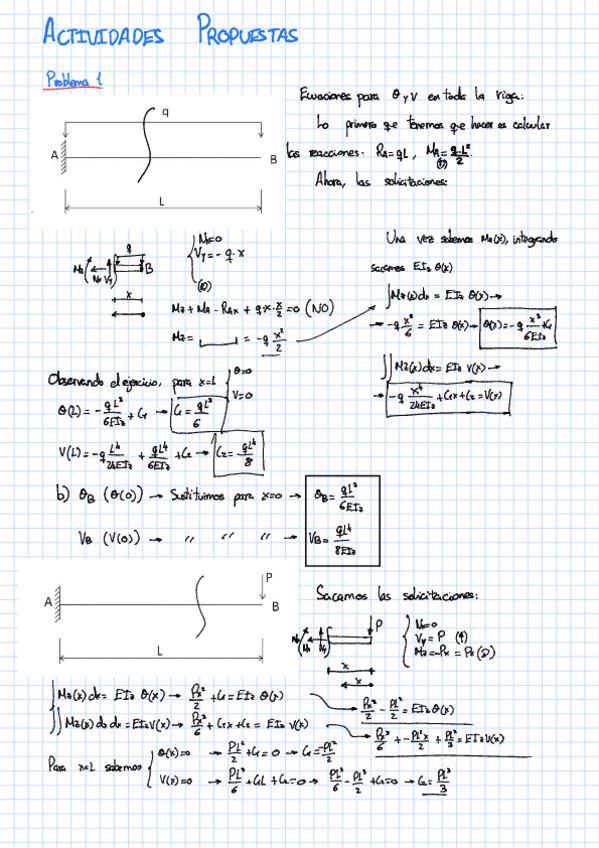 ACTIVIDADES PROPUESTAS
Problema 1
q
A
B
L
Ecuaciones para θ y V en toda la viga:
Lo primero que tenemos que hacer es calcular
las reacciones: RA=qL, MA=q·L²/2
Ahora, las solicitaciones:
q
Mz
Nx
Vy
B
x
Nx=0
Vy=-q·x
Mz+MA-RAx+q·x·x/2=0 (NO)
Mz= = -q x²/2
Una vez sabemos Mz(x), integrando
sacamos EIz θ(x)
∫Mz(x)dx = EIz θ(x) →
→ -q x³/6 = EIz θ(x) → θ(x)=-q x³/6EIz +C1
∬Mz(x)dx=EIz V(x) →
→ -q x⁴/24EIz +C1x+C2=V(x)
Observando el ejercicio, para x=L
θ=0
V=0
θ(L)=-qL³/6EIz +C1 → C1=qL³/6
V(L)=-q L⁴/24EIz + qL⁴/6EIz +C2 → C2=qL⁴/8
b) θB (θ(0)) → Sustituimos para x=0 → θB=qL³/6EIz
VB (V(0)) → " " " → VB=qL⁴/8EIz
P
A
B
L
Sacamos las solicitaciones:
P
Mz
Nx
Vy
x
x
Nx=0
Vy=P
Mz=-Px = Px
∫Mz(x)dx=EIz θ(x) → Px²/2 +C1=EIz θ(x)
Px²/2 - PL²/2 = EIz θ(x)
∬Mz(x)dxdx=EIzV(x) → Px³/6 +C1x+C2 = EIz V(x)
Px³/6 + -PL²x/2 + PL³/3 = EIzV(x)
Para x=L sabemos
θ(x)=0 → PL²/2 +C1=0 → C1=-PL²/2
V(x)=0 → PL³/6 +C1L+C2=0 → PL³/6 - PL³/2 +C2=0 → C2=PL³/3